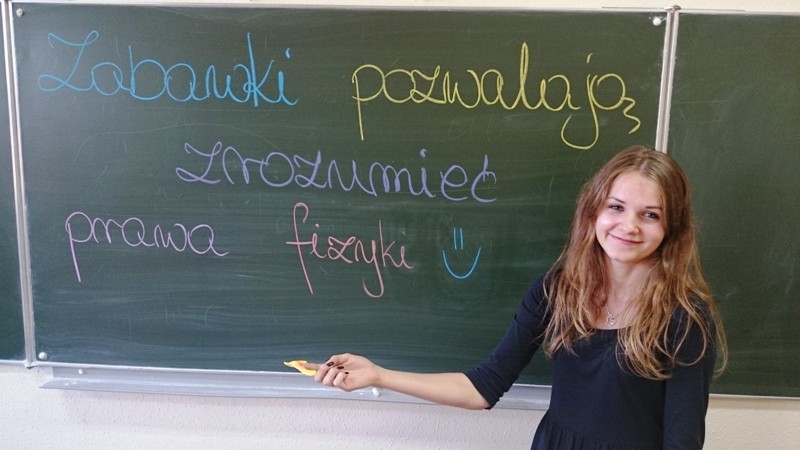 Zabawki pozwalają
zrozumieć
prawa fizyki